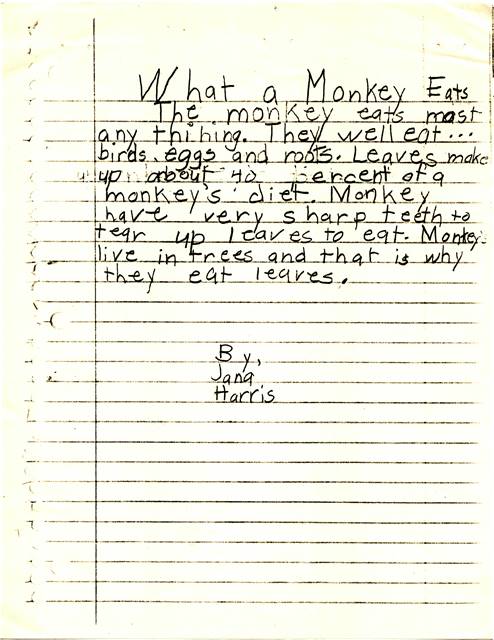 What a Monkey Eats
The monkey eats most
any thihing. They well eat...
birds, eggs and roots. Leaves make
up about 40 percent of a
monkey's diet. Monkey
have very sharp teeth to
tear up leaves to eat. Monkey
live in trees and that is why
they eat leaves.
By,
Jana
Harris